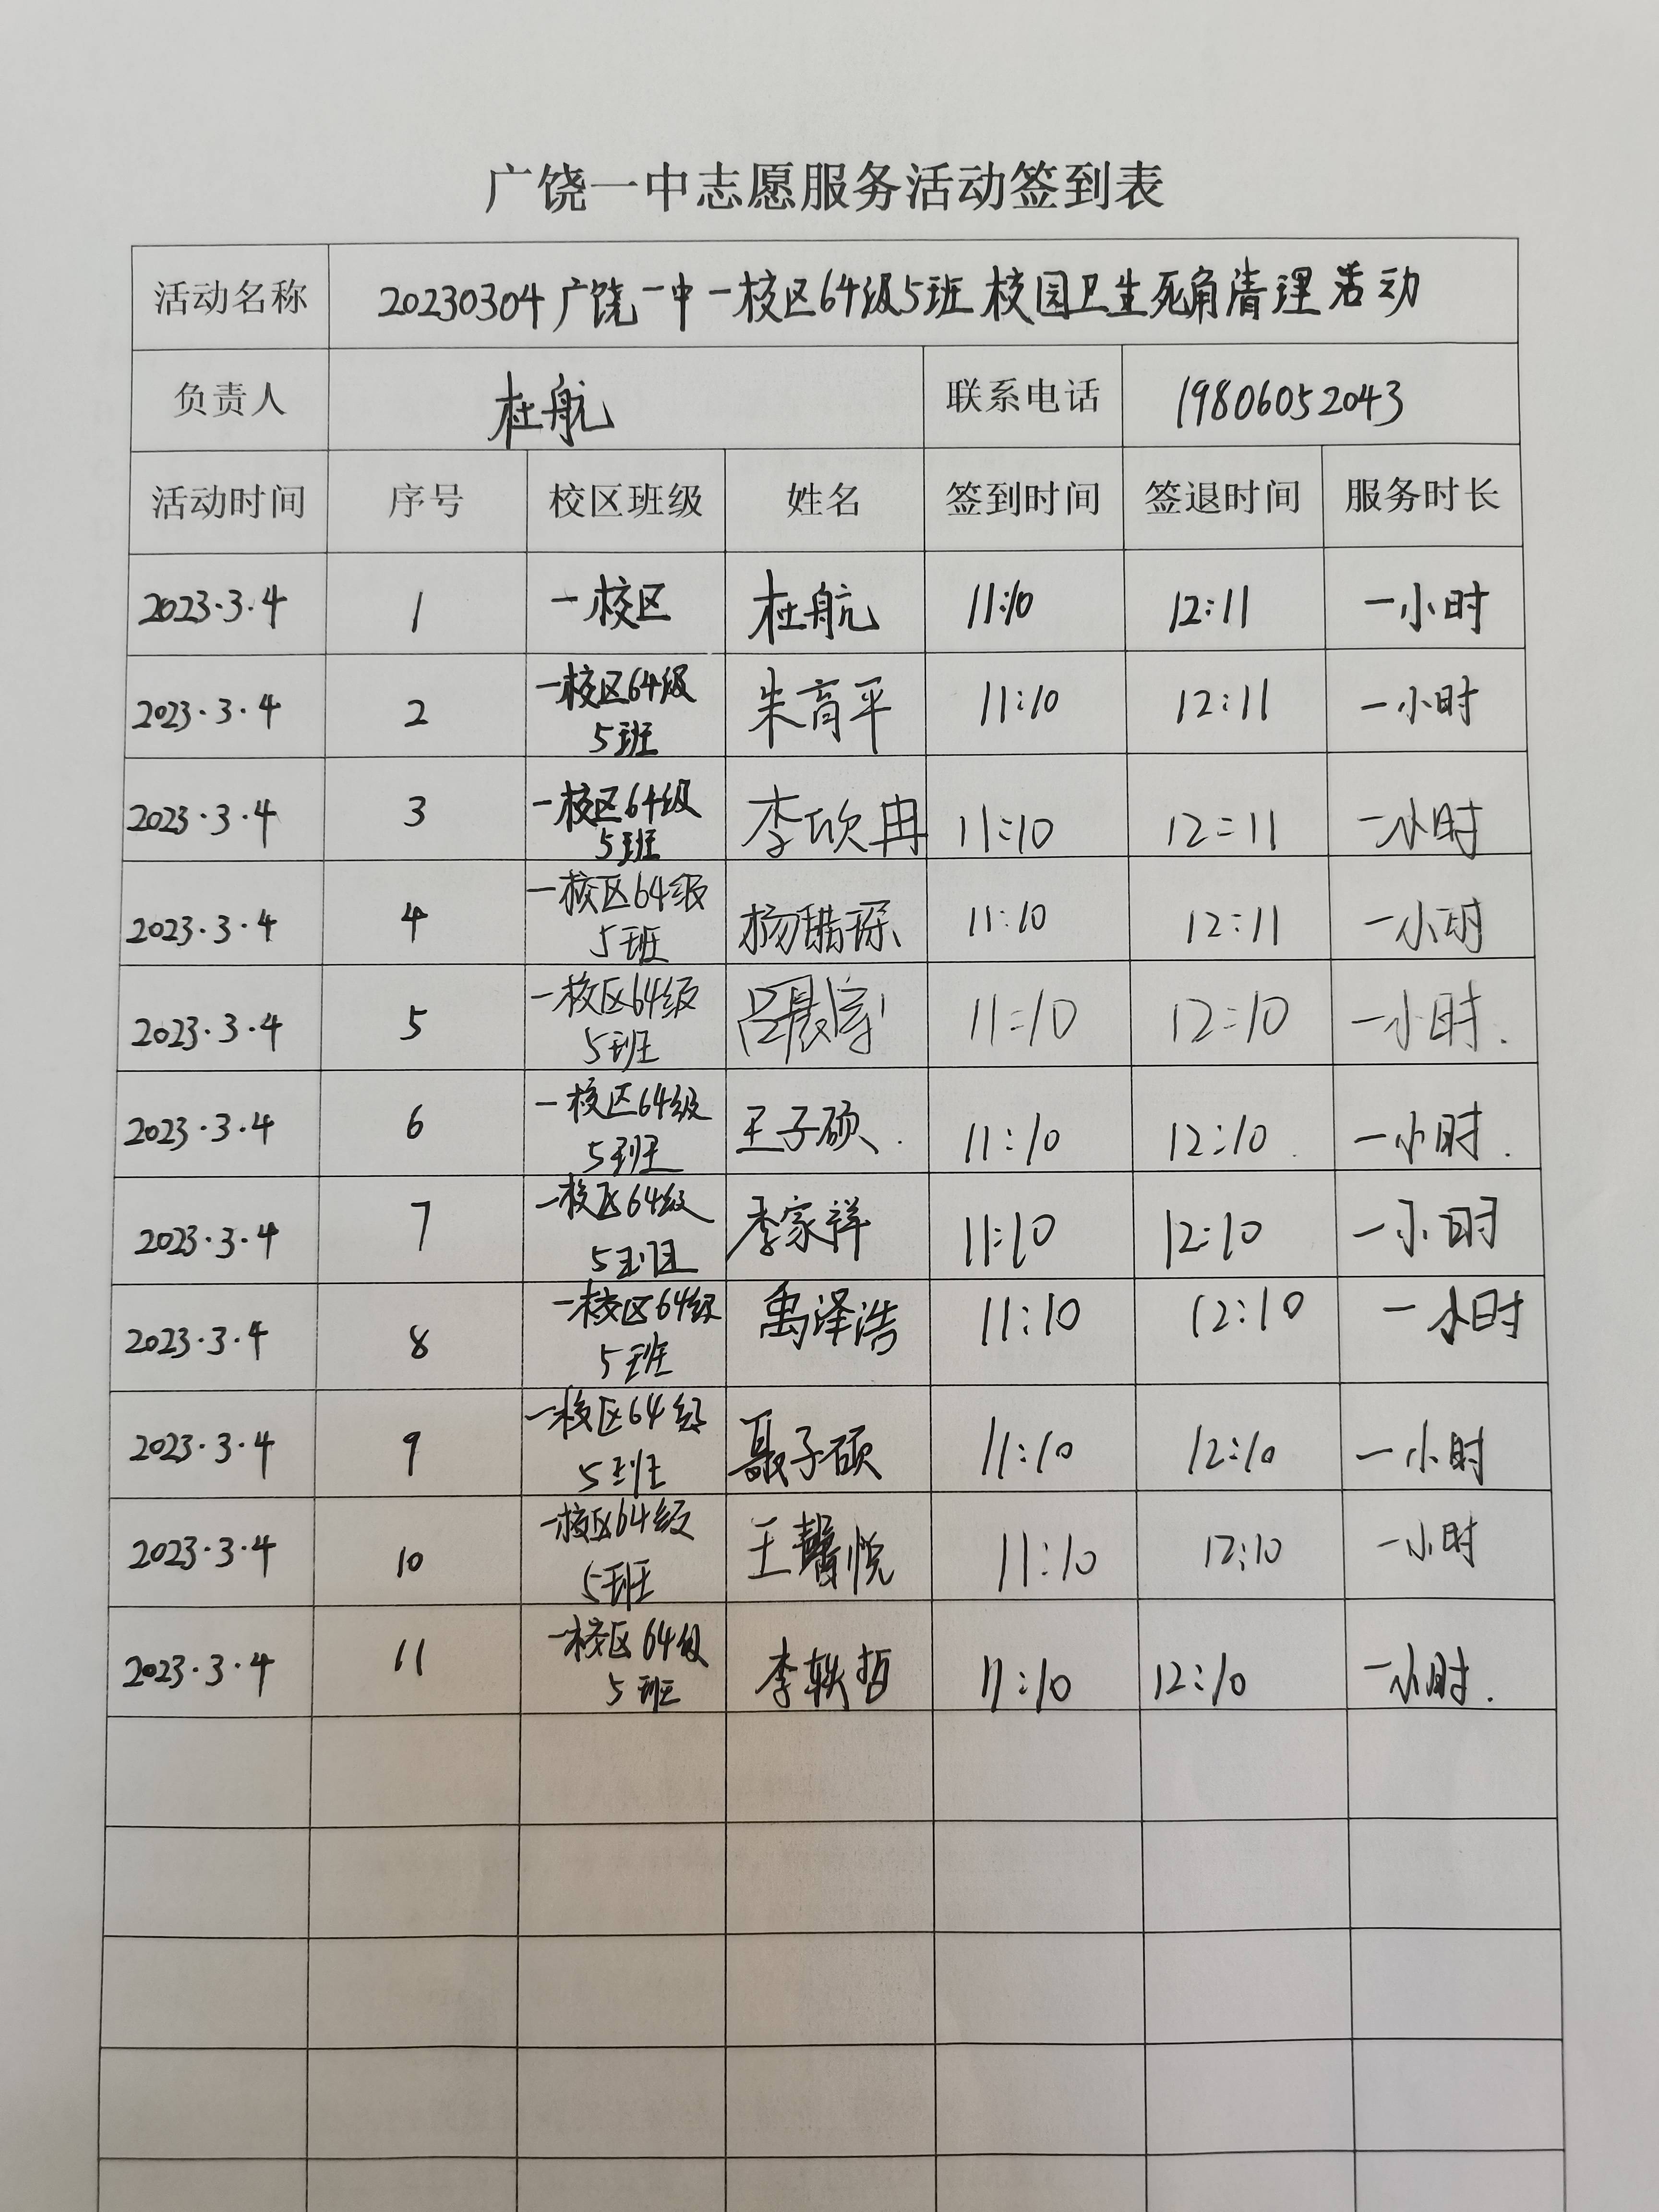 广饶一中志愿服务活动签到表
活动名称 20230304广饶一中一校区64级5班校园卫生死角清理活动
负责人 杜航 联系电话 19806052043
活动时间 序号 校区班级 姓名 签到时间 签退时间 服务时长
2023.3.4 1 一校区 杜航 11:10 12:11 一小时
2023.3.4 2 一校区64级 朱育平 11:10 12:11 一小时
5班
2023.3.4 3 一校区64级 李欣冉 11:10 12:11 一小时
5班
2023.3.4 4 一校区64级 11:10 12:11 一小时
5班
2023.3.4 5 一校区64级 吕晨宇 11:10 12:10 一小时.
5班
2023.3.4 6 一校区64级 王子硕. 11:10 12:10. 一小时.
5班
2023.3.4 7 一校区64级 李家祥 11:10 12:10 一小时
5班
2023.3.4 8 一校区64级 禹泽浩 11:10 12:10 一小时
5班
2023.3.4 9 一校区64级 聂子硕 11:10 12:10 一小时
5班
2023.3.4 10 一校区64级 王馨悦 11:10 12:10 一小时
5班
2023.3.4 11 一校区64级 李轶哲 11:10 12:10 一小时.
5班